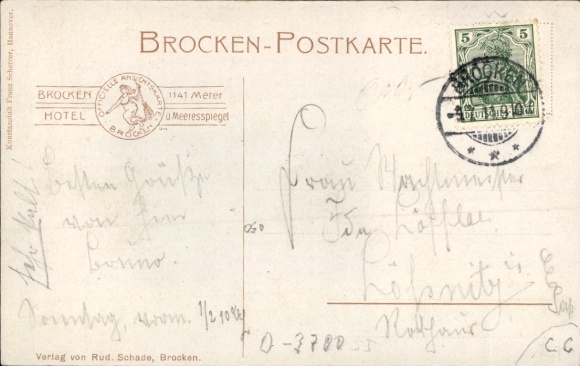 Kunstanstalt Franz Scherrer, Hannover.
BROCKEN-POSTKARTE.
BROCKEN
HOTEL
OFFICIELLE ANSICHTSKARTE
BROCKEN
1141 Meter
ü Meeresspiegel
5 5
DEUTSCHES REICH
BROCKEN
Sehr kalt!
Besten Grüße
von hier
Bruno.
Sonntag, vorm. 1/2 10
Frau Wachtmeister
Ida Löffler
Lößnitz i.
Rathaus
0-3700
C.G
Verlag von Rud. Schade, Brocken.